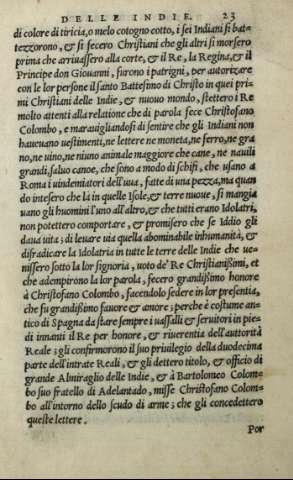 DELLE INDIE. 23
di colore di tiricia, o uelo cotogno cotto, i sei Indiani si bat-
tezzorono, & si fecero Christiani che gli altri si morsero
prima che arriuassero alla corte, & il Re, la Regina, & il
Principe don Giouanni, furono i patrigni, per autorizare
con le lor persone il santo Battesimo di Christo in quei pri
mi Christiani delle Indie, & nuouo mondo, stettero i Re
molto attenti alla relatione che di parola fece Christofano
Colombo, e marauigliandosi di sentire che gli Indiani non
haueuano uestimenti, ne lettere ne moneta, ne ferro, ne gra
no, ne uino, ne niuno animale maggiore che cane, ne nauili
grandi, saluo canoe, che sono a modo di schifi, che usano a
Roma i uindemiatori dell'uua, fatte di una pezza, ma quan
do intesero che là in quelle Isole, & terre nuoue, si mangia
uano gli huomini l'uno all'altro, & che tutti erano Idolatri,
non potettero comportare, & promisero che se Iddio gli
daua uita; di leuare uia quella abominabile inhumanità, &
disradicare la Idolatria in tutte le terre delle Indie che ue-
nissero sotto la lor signoria, uoto de' Re Christianissimi, et
che adempirono la lor parola, fecero grandissimo honore
à Christofano Colombo, facendolo sedere in lor presentia,
che fu grandissimo fauore & amore; perche è costume an-
tico di Spagna da stare sempre i uassalli & seruitori in pie-
di innanti il Re per honore, & riuerentia dell'autorità
Reale; gli confirmorono il suo priuilegio della duodecima
parte dell'intrate Reali, & gli dettero titolo, & officio di
grande Almiraglio delle Indie, & à Bartolomeo Colom-
bo suo fratello di Adelantado, misse Christofano Colom-
bo all'intorno dello scudo di arme; che gli concedettero
queste lettere.
Por